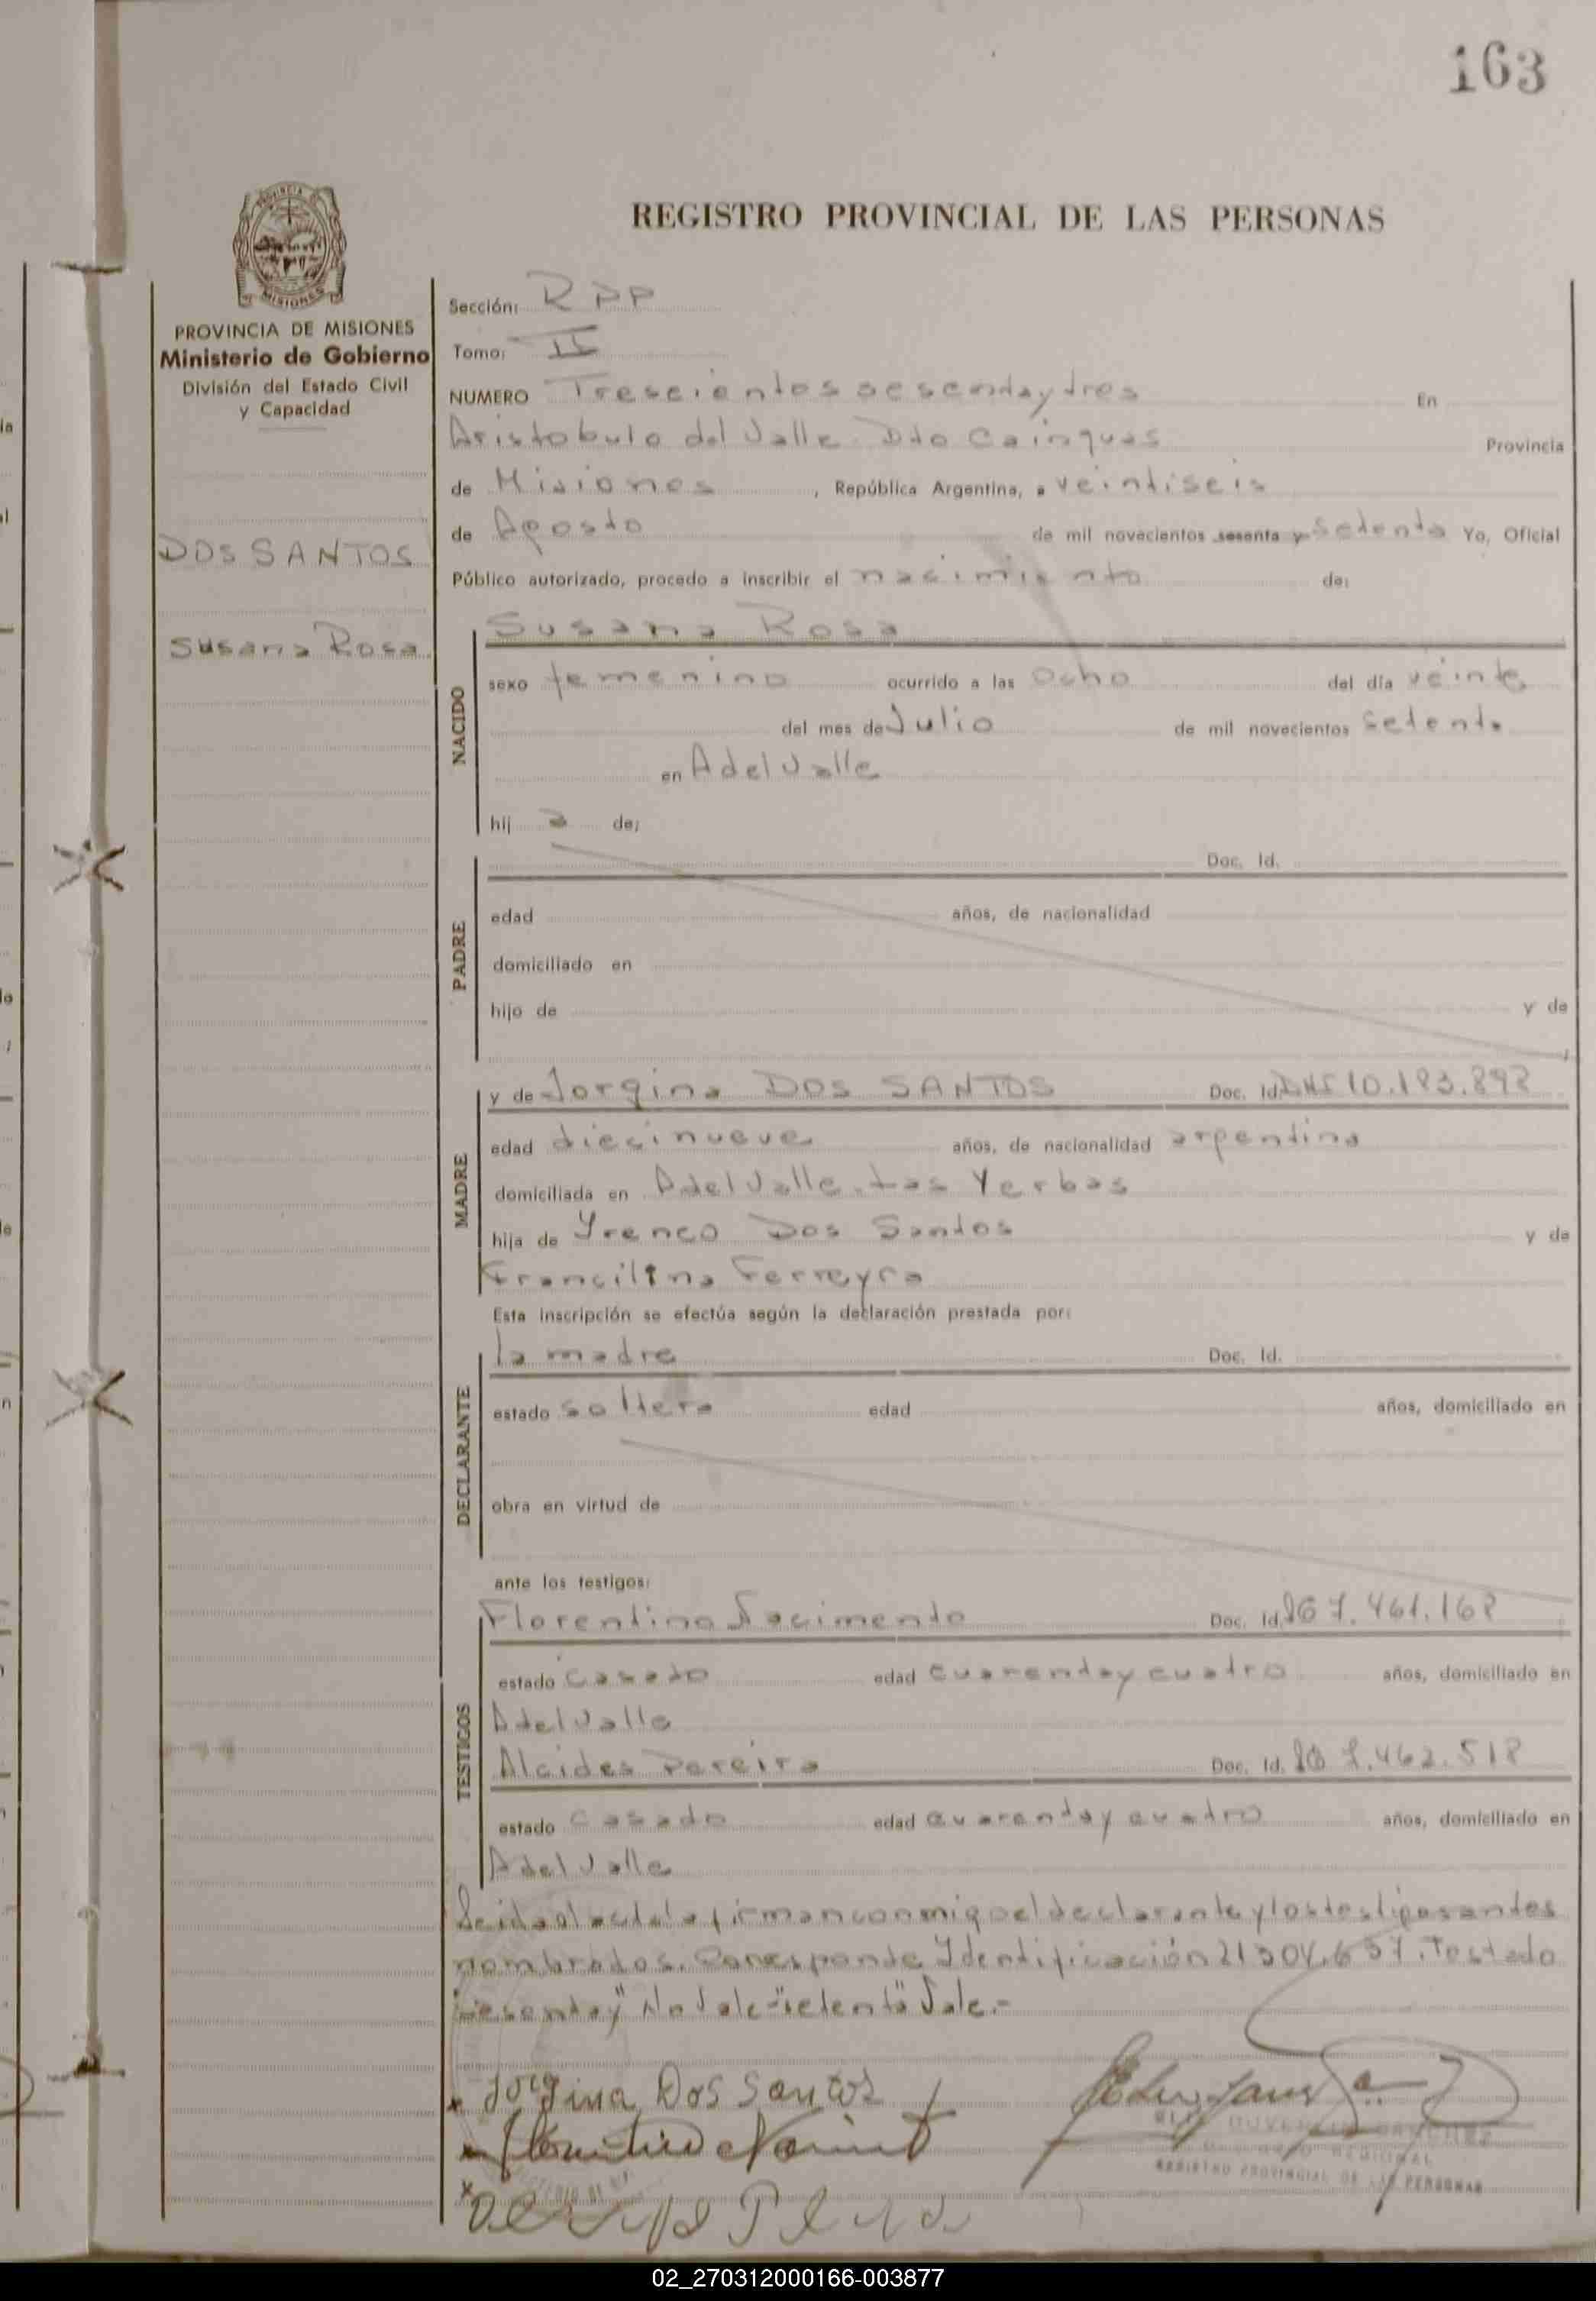 163
PROVINCIA DE MISIONES
Ministerio de Gobierno
División del Estado Civil
y Capacidad
DOS SANTOS
Susana Rosa
REGISTRO PROVINCIAL DE LAS PERSONAS
Sección: RPP
Tomo: II
NUMERO Trescientos sesentaytres En
Aristobulo del Valle Dto Cainguas Provincia
de Misiones, República Argentina, a veintiseis
de Agosto de mil novecientos sesenta y setenta Yo, Oficial
Público autorizado, procedo a inscribir el nacimiento de:
NACIDO
Susana Rosa
sexo femenino ocurrido a las Ocho del día veinte
del mes de Julio de mil novecientos setenta
en A del Valle
hij a de;
PADRE
Doc. Id.
edad años, de nacionalidad
domiciliado en
hijo de y de
MADRE
y de Jorgina DOS SANTOS Doc. Id. DNI 10.183.898
edad diecinueve años, de nacionalidad argentina
domiciliada en A del Valle. Las Yerbas
hija de Yreneo Dos Santos y de
Francilina Ferreyra
Esta inscripción se efectúa según la declaración prestada por:
DECLARANTE
la madre Doc. Id.
estado soltera edad años, domiciliado en
obra en virtud de
ante los testigos:
TESTIGOS
Florentino Nacimento Doc. Id. 7.461.168
estado casado edad cuarentaycuatro años, domiciliado en
A del Valle
Alcides Pereira Doc. Id. 7.462.518
estado casado edad cuarentaycuatro años, domiciliado en
A del Valle
Leida el acta la firman conmigo el declarante y los testigos antes
nombrados. Corresponde Identificación 21304.657. Testado
"sesentay" No Vale-"setenta" Vale.-
Jorgina Dos Santos
REGISTRO PROVINCIAL DE LAS PERSONAS
02_270312000166-003877